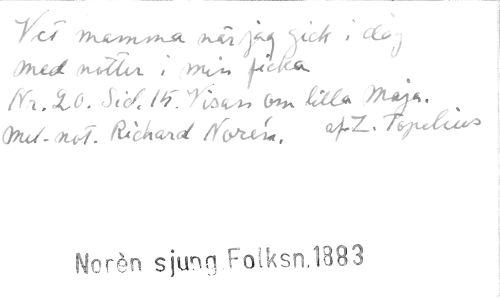 Vet mamma när jag gick i dag
med nötter i min ficka
Nr. 20. Sid. 15. Visan om lilla Maja.
mel-not. Richard Norén. af Z. Topelius
Norèn sjung Folksn.1883